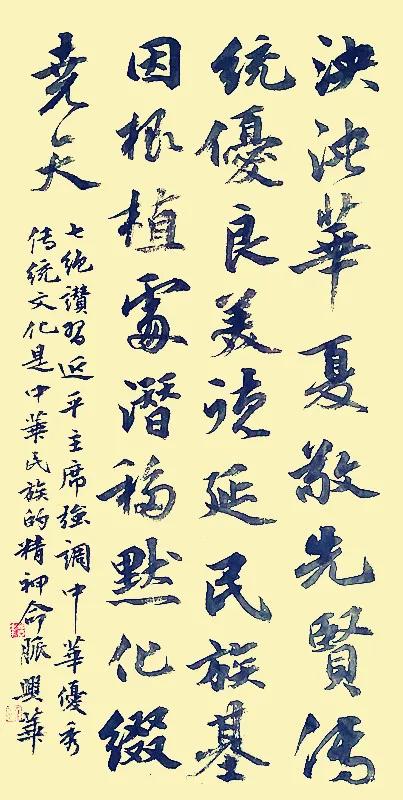 泱泱華夏敬先賢傳
統優良美德延民族基
因根植處潛移默化綴
堯天
七絕讚習近平主席強調中華優秀
传統文化是中華民族的精神命脈興華